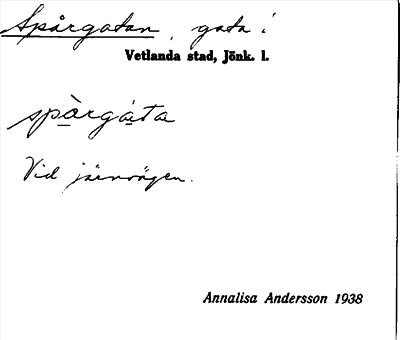 Spårgatan, gata i
Vetlanda stad, Jönk. l.
spȧ̀rgàta
Vid järnvägen.
Annalisa Andersson 1938